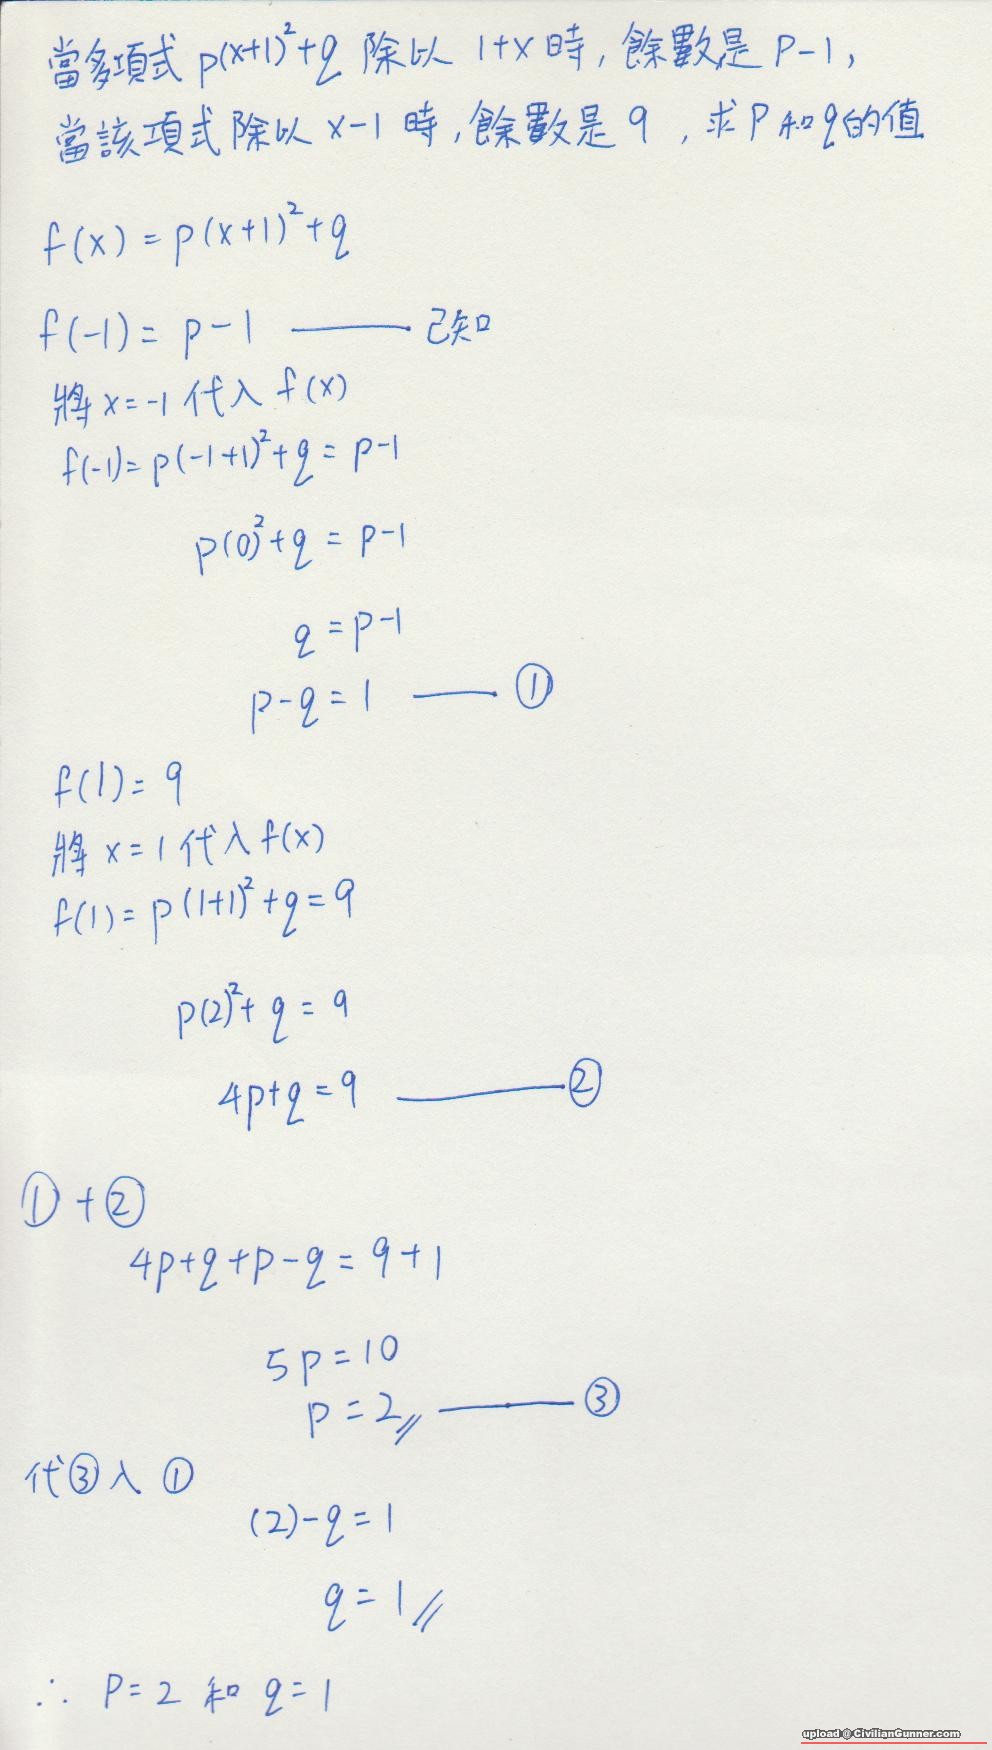 當多項式 p(x+1)²+q 除以 1+x 時, 餘數是 p-1,
當該項式除以 x-1 時, 餘數是 9, 求 p 和 q 的值
f(x) = p(x+1)²+q
f(-1) = p-1 —— 已知
將 x=-1 代入 f(x)
f(-1) = p(-1+1)²+q = p-1
p(0)²+q = p-1
q = p-1
p-q = 1 —— ①
f(1) = 9
將 x=1 代入 f(x)
f(1) = p(1+1)²+q = 9
p(2)²+q = 9
4p+q = 9 —— ②
①+②
4p+q+p-q = 9+1
5p = 10
p = 2 // —— ③
代③入①
(2)-q = 1
q = 1 //
∴ p=2 和 q=1
upload @ CivilianGunner.com